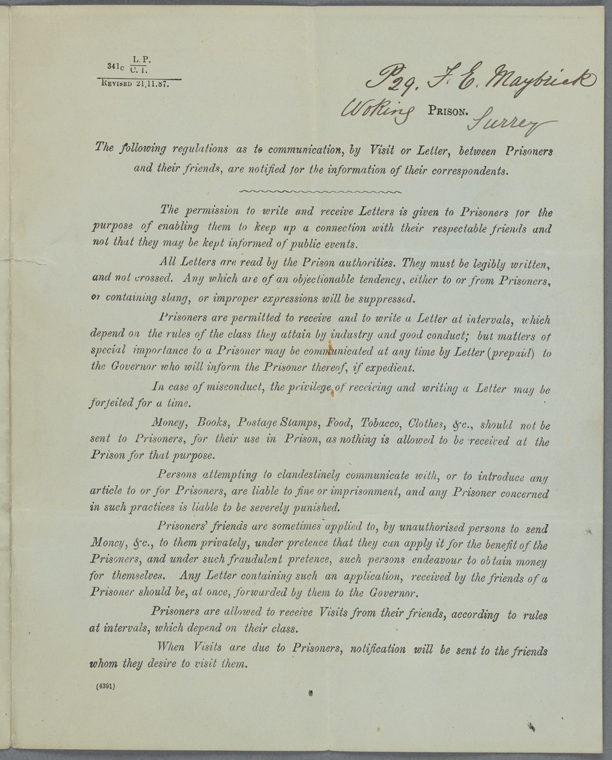 341c L. P.
C. 1.
REVISED 21,11.87.
P29. F. E. Maybrick
Woking PRISON.
Surrey
The following regulations as to communication, by Visit or Letter, between Prisoners
and their friends, are notified for the information of their correspondents.
The permission to write and receive Letters is given to Prisoners for the
purpose of enabling them to keep up a connection with their respectable friends and
not that they may be kept informed of public events.
All Letters are read by the Prison authorities. They must be legibly written,
and not crossed. Any which are of an objectionable tendency, either to or from Prisoners,
or containing slang, or improper expressions will be suppressed.
Prisoners are permitted to receive and to write a Letter at intervals, which
depend on the rules of the class they attain by industry and good conduct; but matters of
special importance to a Prisoner may be communicated at any time by Letter (prepaid) to
the Governor who will inform the Prisoner thereof, if expedient.
In case of misconduct, the privilege of receiving and writing a Letter may be
forfeited for a time.
Money, Books, Postage Stamps, Food, Tobacco, Clothes, &c., should not be
sent to Prisoners, for their use in Prison, as nothing is allowed to be received at the
Prison for that purpose.
Persons attempting to clandestinely communicate with, or to introduce any
article to or for Prisoners, are liable to fine or imprisonment, and any Prisoner concerned
in such practices is liable to be severely punished.
Prisoners' friends are sometimes applied to, by unauthorised persons to send
Money, &c., to them privately, under pretence that they can apply it for the benefit of the
Prisoners, and under such fraudulent pretence, such persons endeavour to obtain money
for themselves. Any Letter containing such an application, received by the friends of a
Prisoner should be, at once, forwarded by them to the Governor.
Prisoners are allowed to receive Visits from their friends, according to rules
at intervals, which depend on their class.
When Visits are due to Prisoners, notification will be sent to the friends
whom they desire to visit them.
(4391)